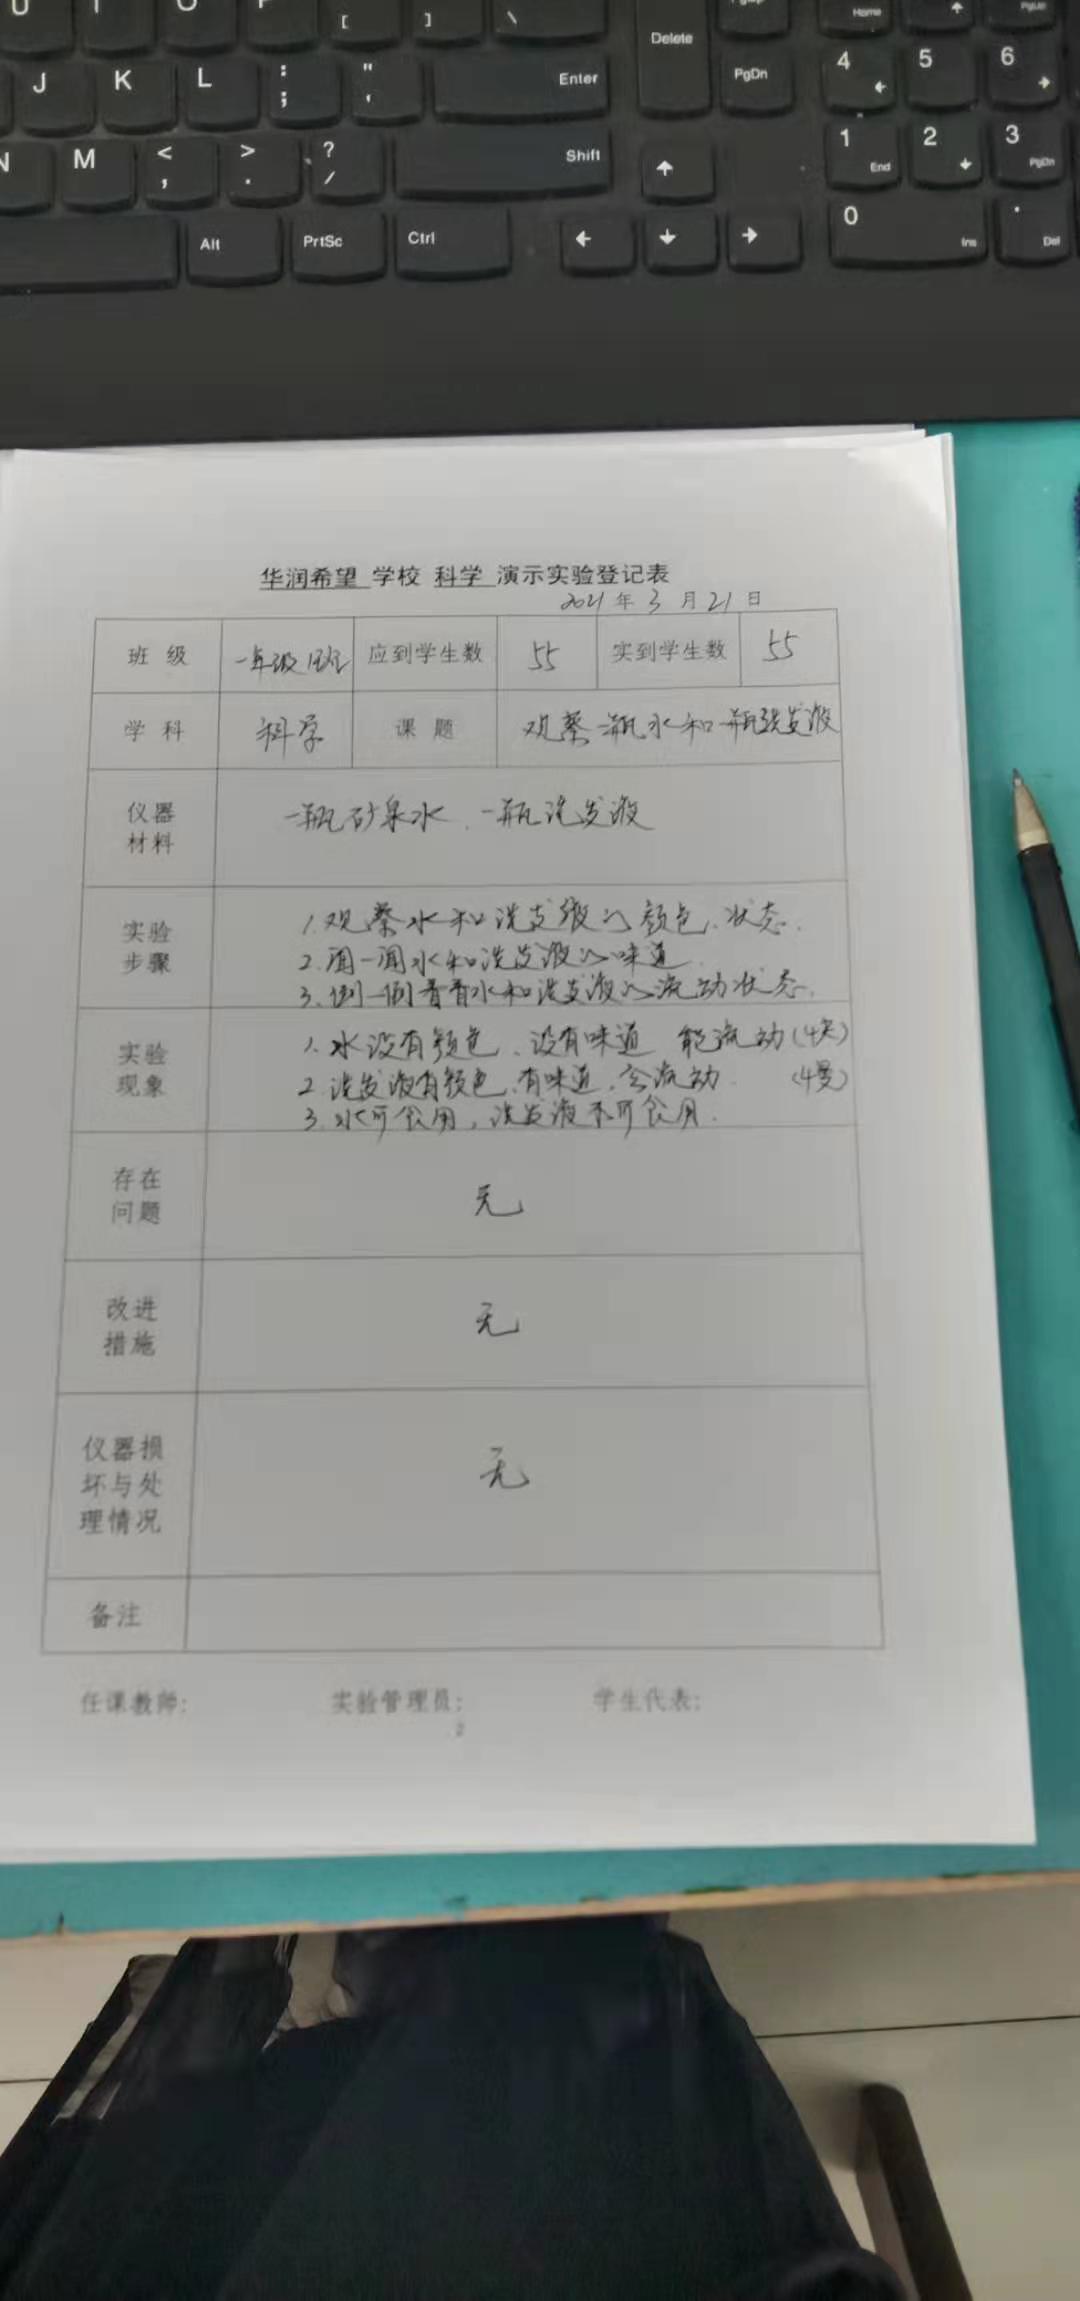 U I O P [ ] \ PgUp Home PgUp
J K L : ; " ' Enter Delete PgDn 4 5 6
N M < , > . ? / Shift 1 End 2 3 PgDn
Alt PrtSc Ctrl 0 Ins . Del
华润希望 学校 科学 演示实验登记表
2021 年 3 月 21 日
班级 一年级1班 应到学生数 55 实到学生数 55
学科 科学 课题 观察一瓶水和一瓶洗发液
仪器
材料
一瓶矿泉水、一瓶洗发液
实验
步骤
1.观察水和洗发液的颜色、状态.
2.闻一闻水和洗发液的味道.
3.倒一倒看看水和洗发液的流动状态.
实验
现象
1.水没有颜色、没有味道 能流动(快)
2.洗发液有颜色、有味道、会流动. (慢)
3.水可食用,洗发液不可食用.
存在
问题
无
改进
措施
无
仪器损
坏与处
理情况
无
备注
任课教师: 实验管理员: 学生代表:
2